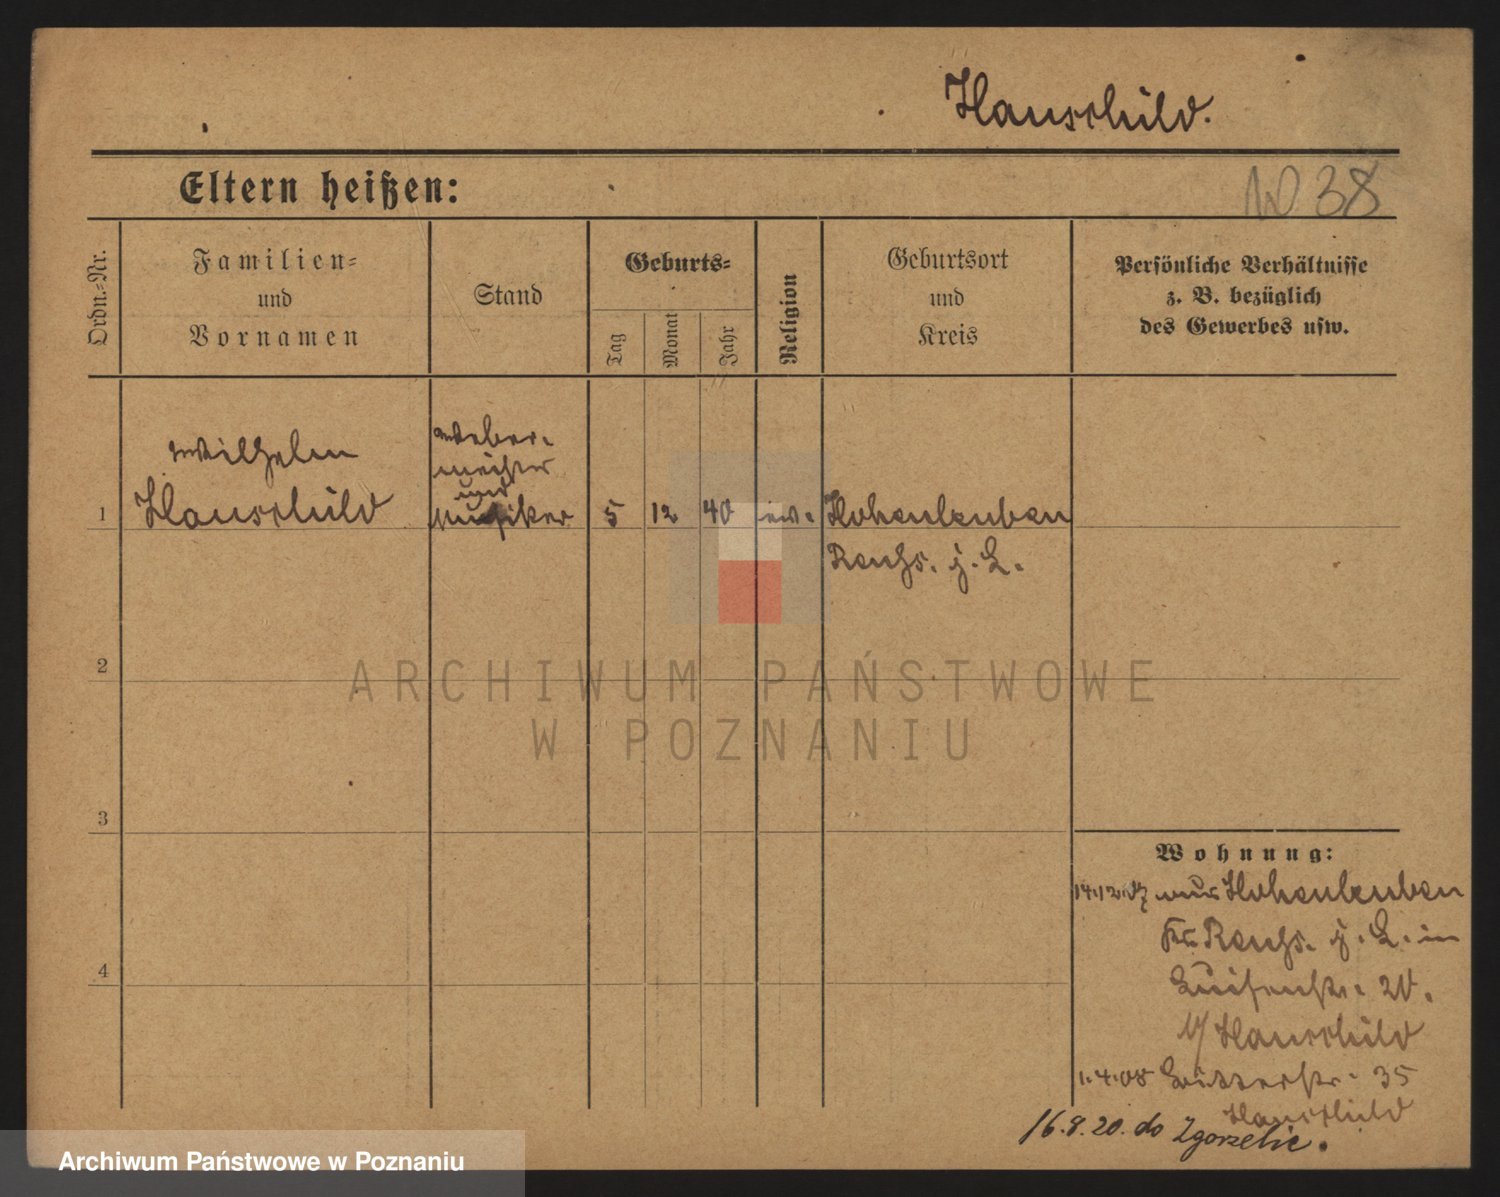 Hauschild.
Eltern heißen:
W 38
Ordn.-Nr.
Familien-
und
Vornamen
Stand
Geburts-
Tag
Monat
Jahr
Religion
Geburtsort
und
Kreis
Persönliche Verhältnisse
z. B. bezüglich
des Gewerbes usw.
1
Wilhelm
Hauschild
Weber-
meister
und
Musiker
5
12
40
ev.
Hohenleuben
Reuß. j. L.
2
3
4
Wohnung:
14.12.07 aus Hohenleuben
Kr. Reuß. j. L. in
Luisenstr. 20.
b/ Hauschild
1.4.08 Ritterstr. 35
Hauschild
16.9.20. do Zgorzelic.
ARCHIWUM PAŃSTWOWE
W POZNANIU
Archiwum Państwowe w Poznaniu